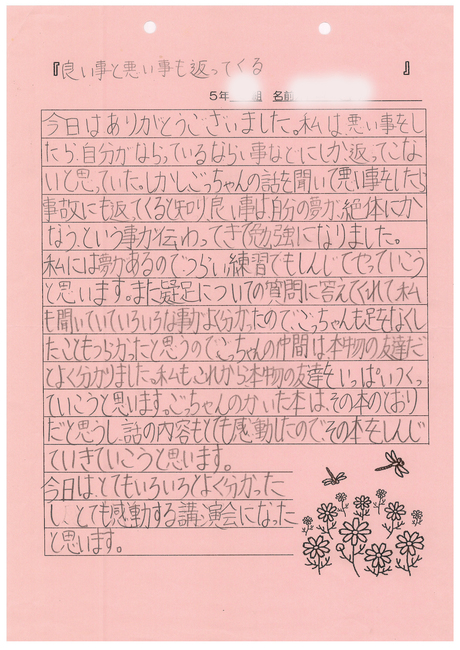 『良い事と悪い事も返ってくる』
5年 組 名前
今日はありがとうございました。私は、悪い事をし
たら、自分がならっているならい事などにしか返ってこな
いと思っていた。しかしごっちゃんの話を聞いて悪い事をしたら
事故にも返ってくると知り、良い事は、自分の夢が、絶体にか
なう、という事が伝わってきて勉強になりました。
私には夢があるのでつらい練習でもしんじてやっていこう
と思います。また疑足についての質問に答えてくれて私
も聞いていていろいろな事がよく分かったので、ごっちゃんも足をなくし
たこともつらかったと思うのでごっちゃんの仲間は、本物の友達だ
とよく分かりました。私もこれから本物の友達をいっぱいつくっ
ていこうと思います。ごっちゃんのかいた本は、その本のとおり
だと思うし、話の内容もとても感動したので、その本をしんじ
ていきていこうと思います。
今日は、とてもいろいろとよく分かった
し、とても感動する講演会になった
と思います。